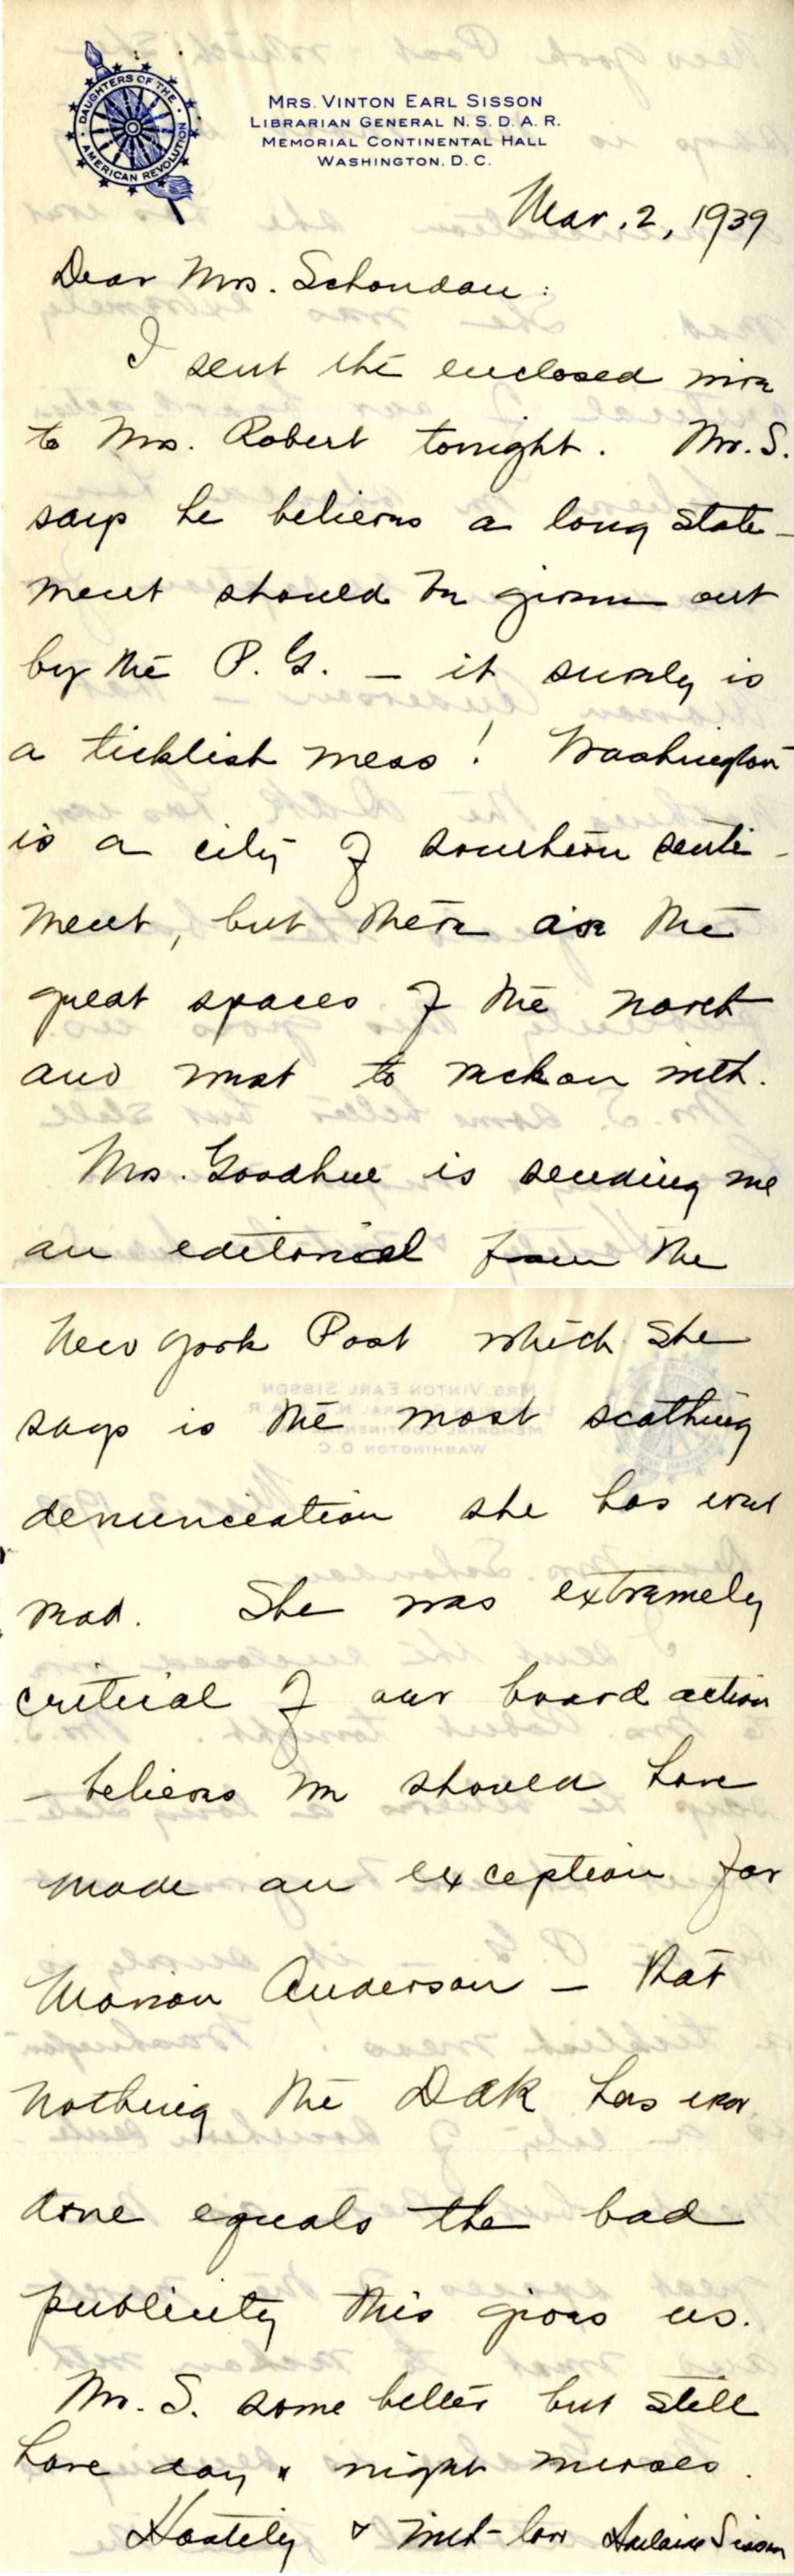 DAUGHTERS OF THE AMERICAN REVOLUTION
MRS. VINTON EARL SISSON
LIBRARIAN GENERAL N. S. D. A. R.
MEMORIAL CONTINENTAL HALL
WASHINGTON, D. C.
Mar. 2, 1939
Dear Mrs. Schondau:
I sent the enclosed wire
to Mrs. Robert tonight. Mr. S.
says he believes a long state-
ment should be given out
by the P. G. — it surely is
a ticklish mess! Washington
is a city of southern senti-
ment, but there are the
great spaces of the north
and west to reckon with.
Mrs. Goodhue is sending me
an editorial from the
New York Post which she
says is the most scathing
denunciation she has ever
read. She was extremely
critical of our board action
— believes we should have
made an exception for
Marian Anderson — that
nothing the DAR has ever
done equals the bad
publicity this gives us.
Mr. S. some better but still
have day & night nurses.
Hastily & with love Adelaide Sisson